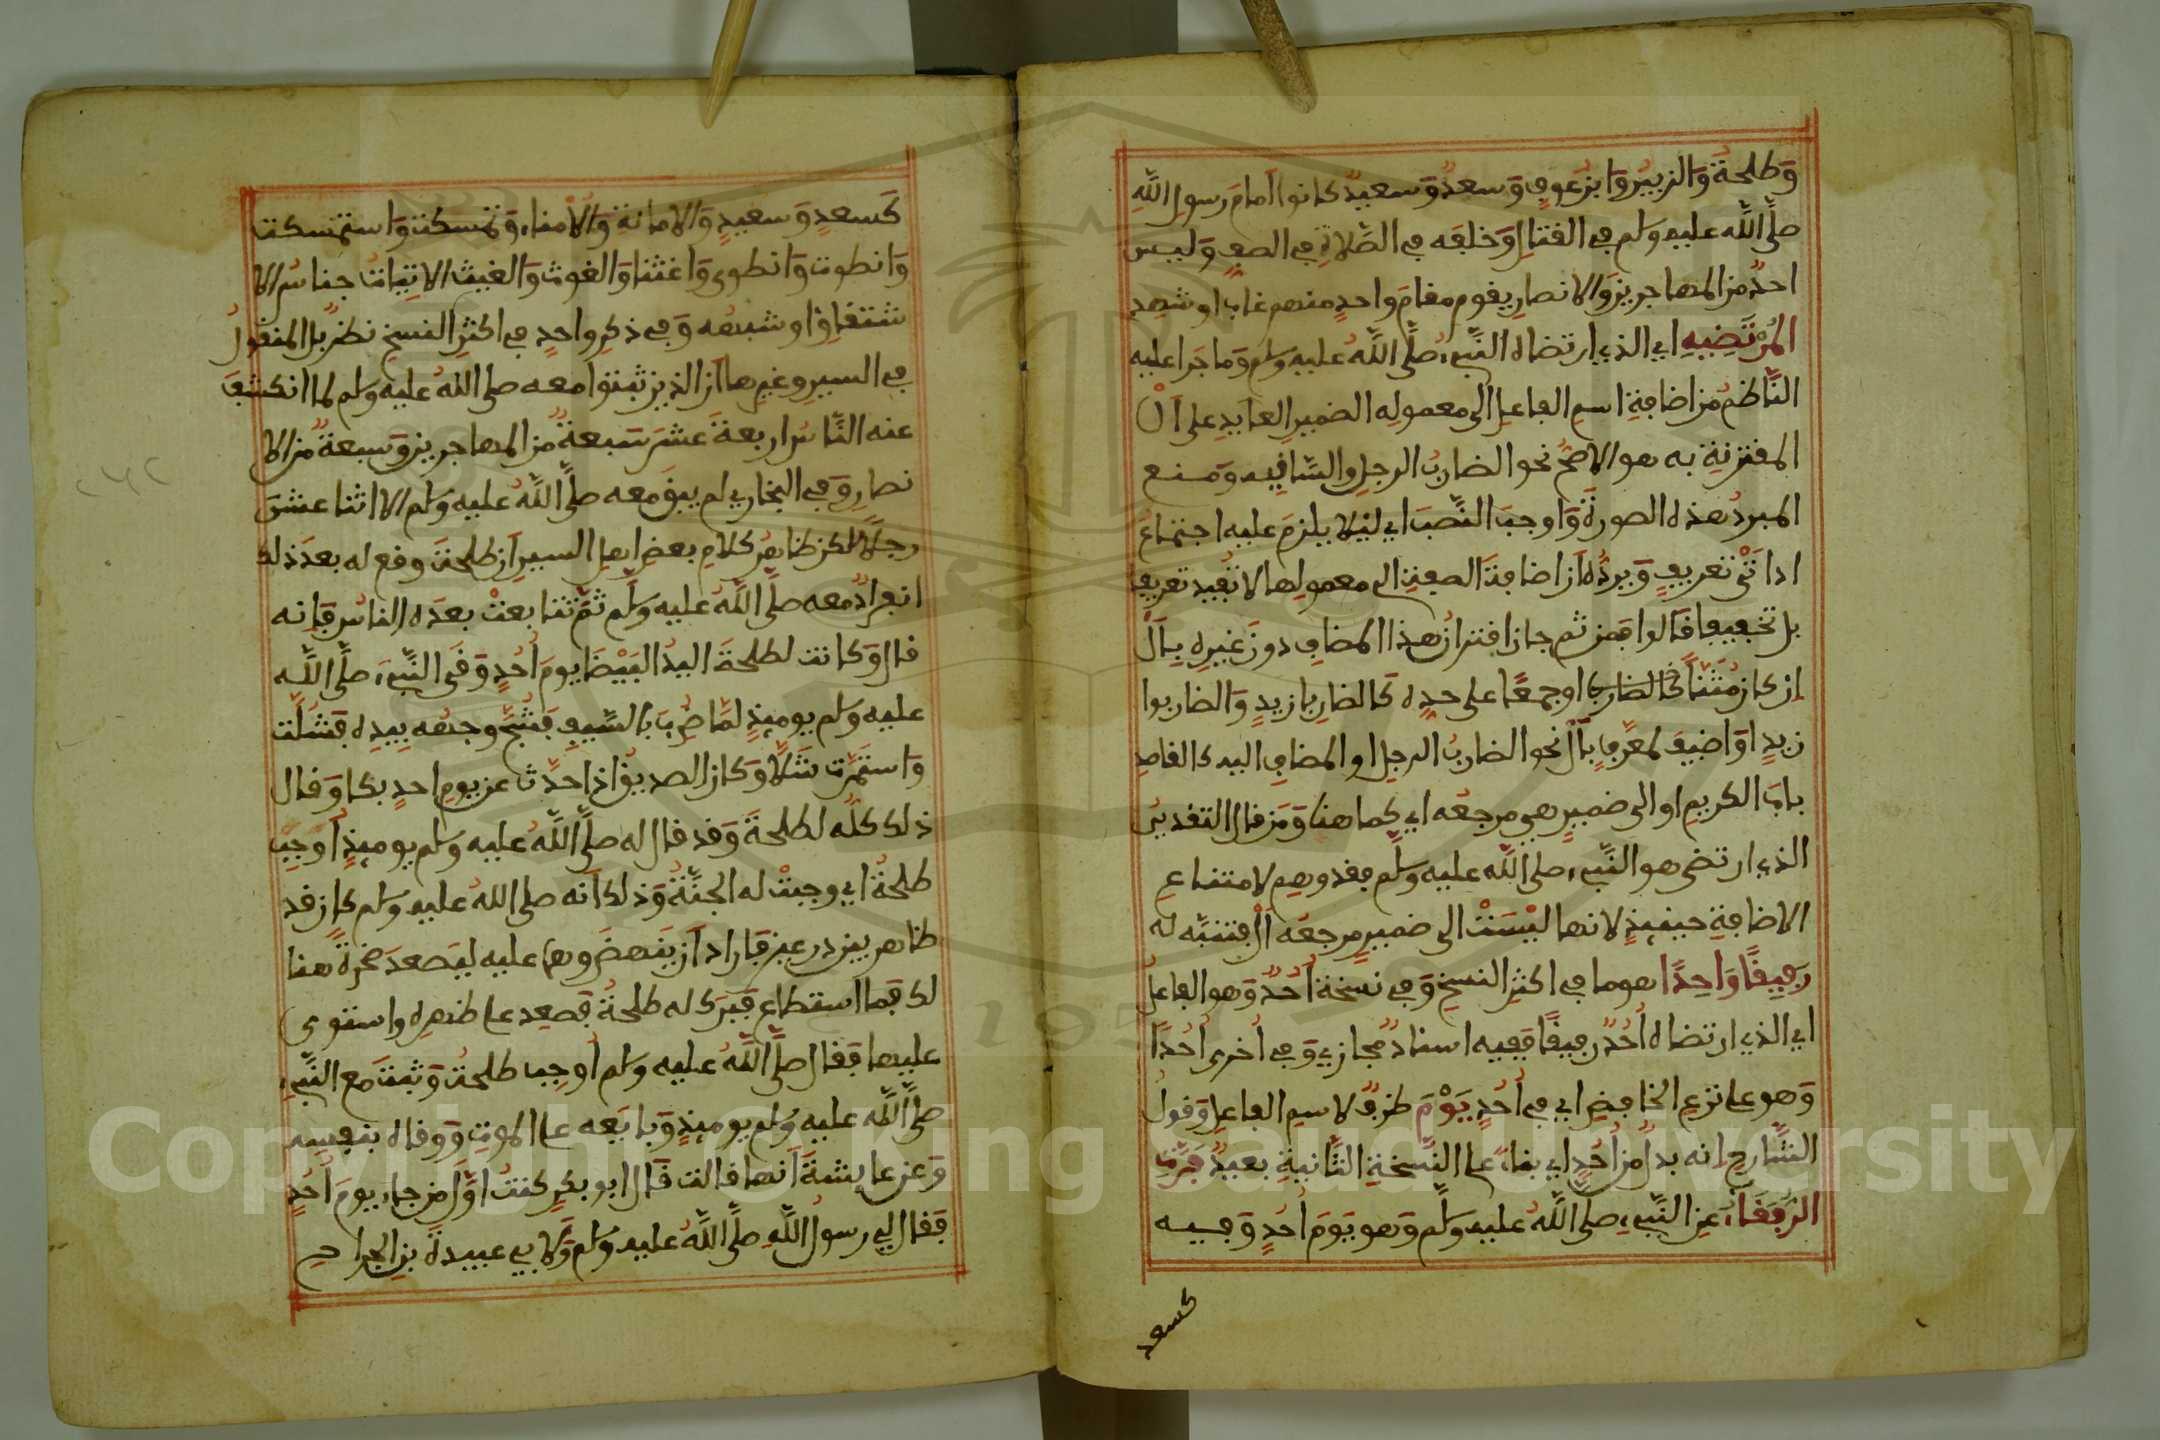 وَطلحةُ وَالزبيرُ وَابنُ عوفٍ وَسعدٌ وَسعيدٌ كانوا أمامَ رسولِ اللّٰهِ
صلّى اللّٰه عليه وسلم في القتالِ وَخلفه في الصّلاةِ في الصفِ وَليس
احدٌ من المهاجرين وَالانصارِ يقوم مقامَ واحدٍ منهم غاب او شهد
المُرْتَضِيهِ اي الذي ارتضاه النّبيء صلّى اللّٰهُ عليه وسلم وَما جرا عليه
النّاظمُ من اضافةِ اسمِ الفاعلِ الى معموله الضميرِ العايدِ على اَلْ
المقترنةِ به هو الاصحُّ نحو الضاربُ الرجلِ والشافيه وَمنع
المبردُ هذه الصورةَ وَاوجبَ النّصبَ اي ليلا يلزمَ عليه اجتماعُ
اداتَيْ تعريفٍ وَيردُّه اَن اضافةَ الصفةِ الى معمولها لا تفيد تعريفا
بل تخفيفا قالوا فمن ثم جاز اقترانُ هذا المضافِ دونَ غيرِه بِاَلْ
إن كان مُثنّاً كالضاربا او جمعًا على حدِه كالضاربا زيدٍ وَالضاربوا
زيدٍ اوَ اضيفَ لمعرَّفٍ باَلْ نحو الضاربُ الرجلِ او المضافِ اليه كالقاصدِ
بابَ الكريمِ او الى ضميرٍ هي مرجعُه اي كما هنا وَمن قال التقديرُ
الذي ارتضى هو النّبيء صلى اللّٰه عليه وسلّم فقد وهم لامتناعِ
الاضافةِ حينئذٍ لانها ليْسَتْ الى ضميرٍ مرجعُه اَلْ فتنبّه له
رَفِيقًا وَاحِدًا هو ما في اكثرِ النسخِ وَفي نسخةٍ اُحُدٌ وَهو الفاعلُ
اي الذي ارتضاه اُحُدٌ رفيقًا ففيه اسنادٌ مجازي وَفي أخرى أُحُدًا
وَهو على نزعِ الخافضِ اي في اُحُدٍ يَوْمَ ظرفٌ لاسمِ الفاعلِ وَقولُ
الشّارحِ انه بدلٌ من اُحُدٍ اي بناءً على النّسخةِ الثّانيةِ بعيدٌ فرَّتِ
الرُّفَقَاءُ عن النّبيء صلّى اللّٰهُ عليه وَسلّم وَهو يَومَ اُحُدٍ وَفيه
كسعد
كَسعدٍ وَسعيدٍ وَالامانة وَالاُمناء وَتمسكت وَاستمسكت
وَانطوت وَانطوى وَاغثنا وَالغوث وَالغيث الاتياتُ جناسُ الا
شتقاقِ او شبهُه وَفي ذكرِ واحدٍ في اكثرِ النسخِ نظرٌ بل المنقولُ
في السيرِ وغيرِها اَن الذين ثبتوا معه صلى اللّٰهُ عليه وسلم لما انكشفَ
عنه النّاسُ اربعةَ عشرَ سَبعةٌ من المهاجرين وَسبعةٌ من الا
نصارِ وَفي البخاري لم يبقَ معه صلّى اللّٰهُ عليه وَسلم الا اثنا عشَر
رجلاً لكن ظاهرُ كلامِ بعضِ اهلِ السيرِ اَن طلحةَ وقع له بعدَ ذلك
انفرادٌ معه صلّى اللّٰهُ عليه وَسلم ثمّ تتابعتْ بعدَه الناسُ فإنه
قال وَكانت لطلحةَ اليدُ البَيْضَا يومَ أُحُدٍ وَقَى النّبيء صلّى اللّٰه
عليه وَسلم يومئذٍ لمّا ضُرِبَ بالسّيفِ فشُجّ وجهُه بيدِه فشُلَّت
وَاستمَرّت شَلّا وَكان الصديقُ اذا حدّث عن يومِ احدٍ بكا وَقال
ذلك كلُّه لطلحةَ وَقد قال له صلّى اللّٰهُ عليه وسلم يومئذٍ أوجبَ
طلحةُ اي وجبتْ له الجنّةُ وَذلك اَنه صلى اللّٰهُ عليه وَسلم كان قد
ظاهر بين درعين فاراد اَن يَنهضَ وهما عليه ليَصعدَ صخرةً هنا
لك فما استطاع فبَرَك له طلحةُ فصعد على ظهرِه واستوى
عليها فقال صلّى اللّٰهُ عليه وَسلم أوجب طلحةُ وَثبتَ مع النّبيء
صلّى اللّٰه عليه وَسلم يومئذٍ وَبايَعه على الموتِ وَوقاه بنفسِه
وَعن عايشةَ اَنها قالت قَال ابو بكرٍ كنتُ اوّلَ من جاء يومَ اُحُدٍ
فقال لي رسولُ اللّٰهِ صلّى اللّٰهُ عليه وَسلم وَلابي عبيدةَ بنِ الجراحِ
Copyright © King Saud University